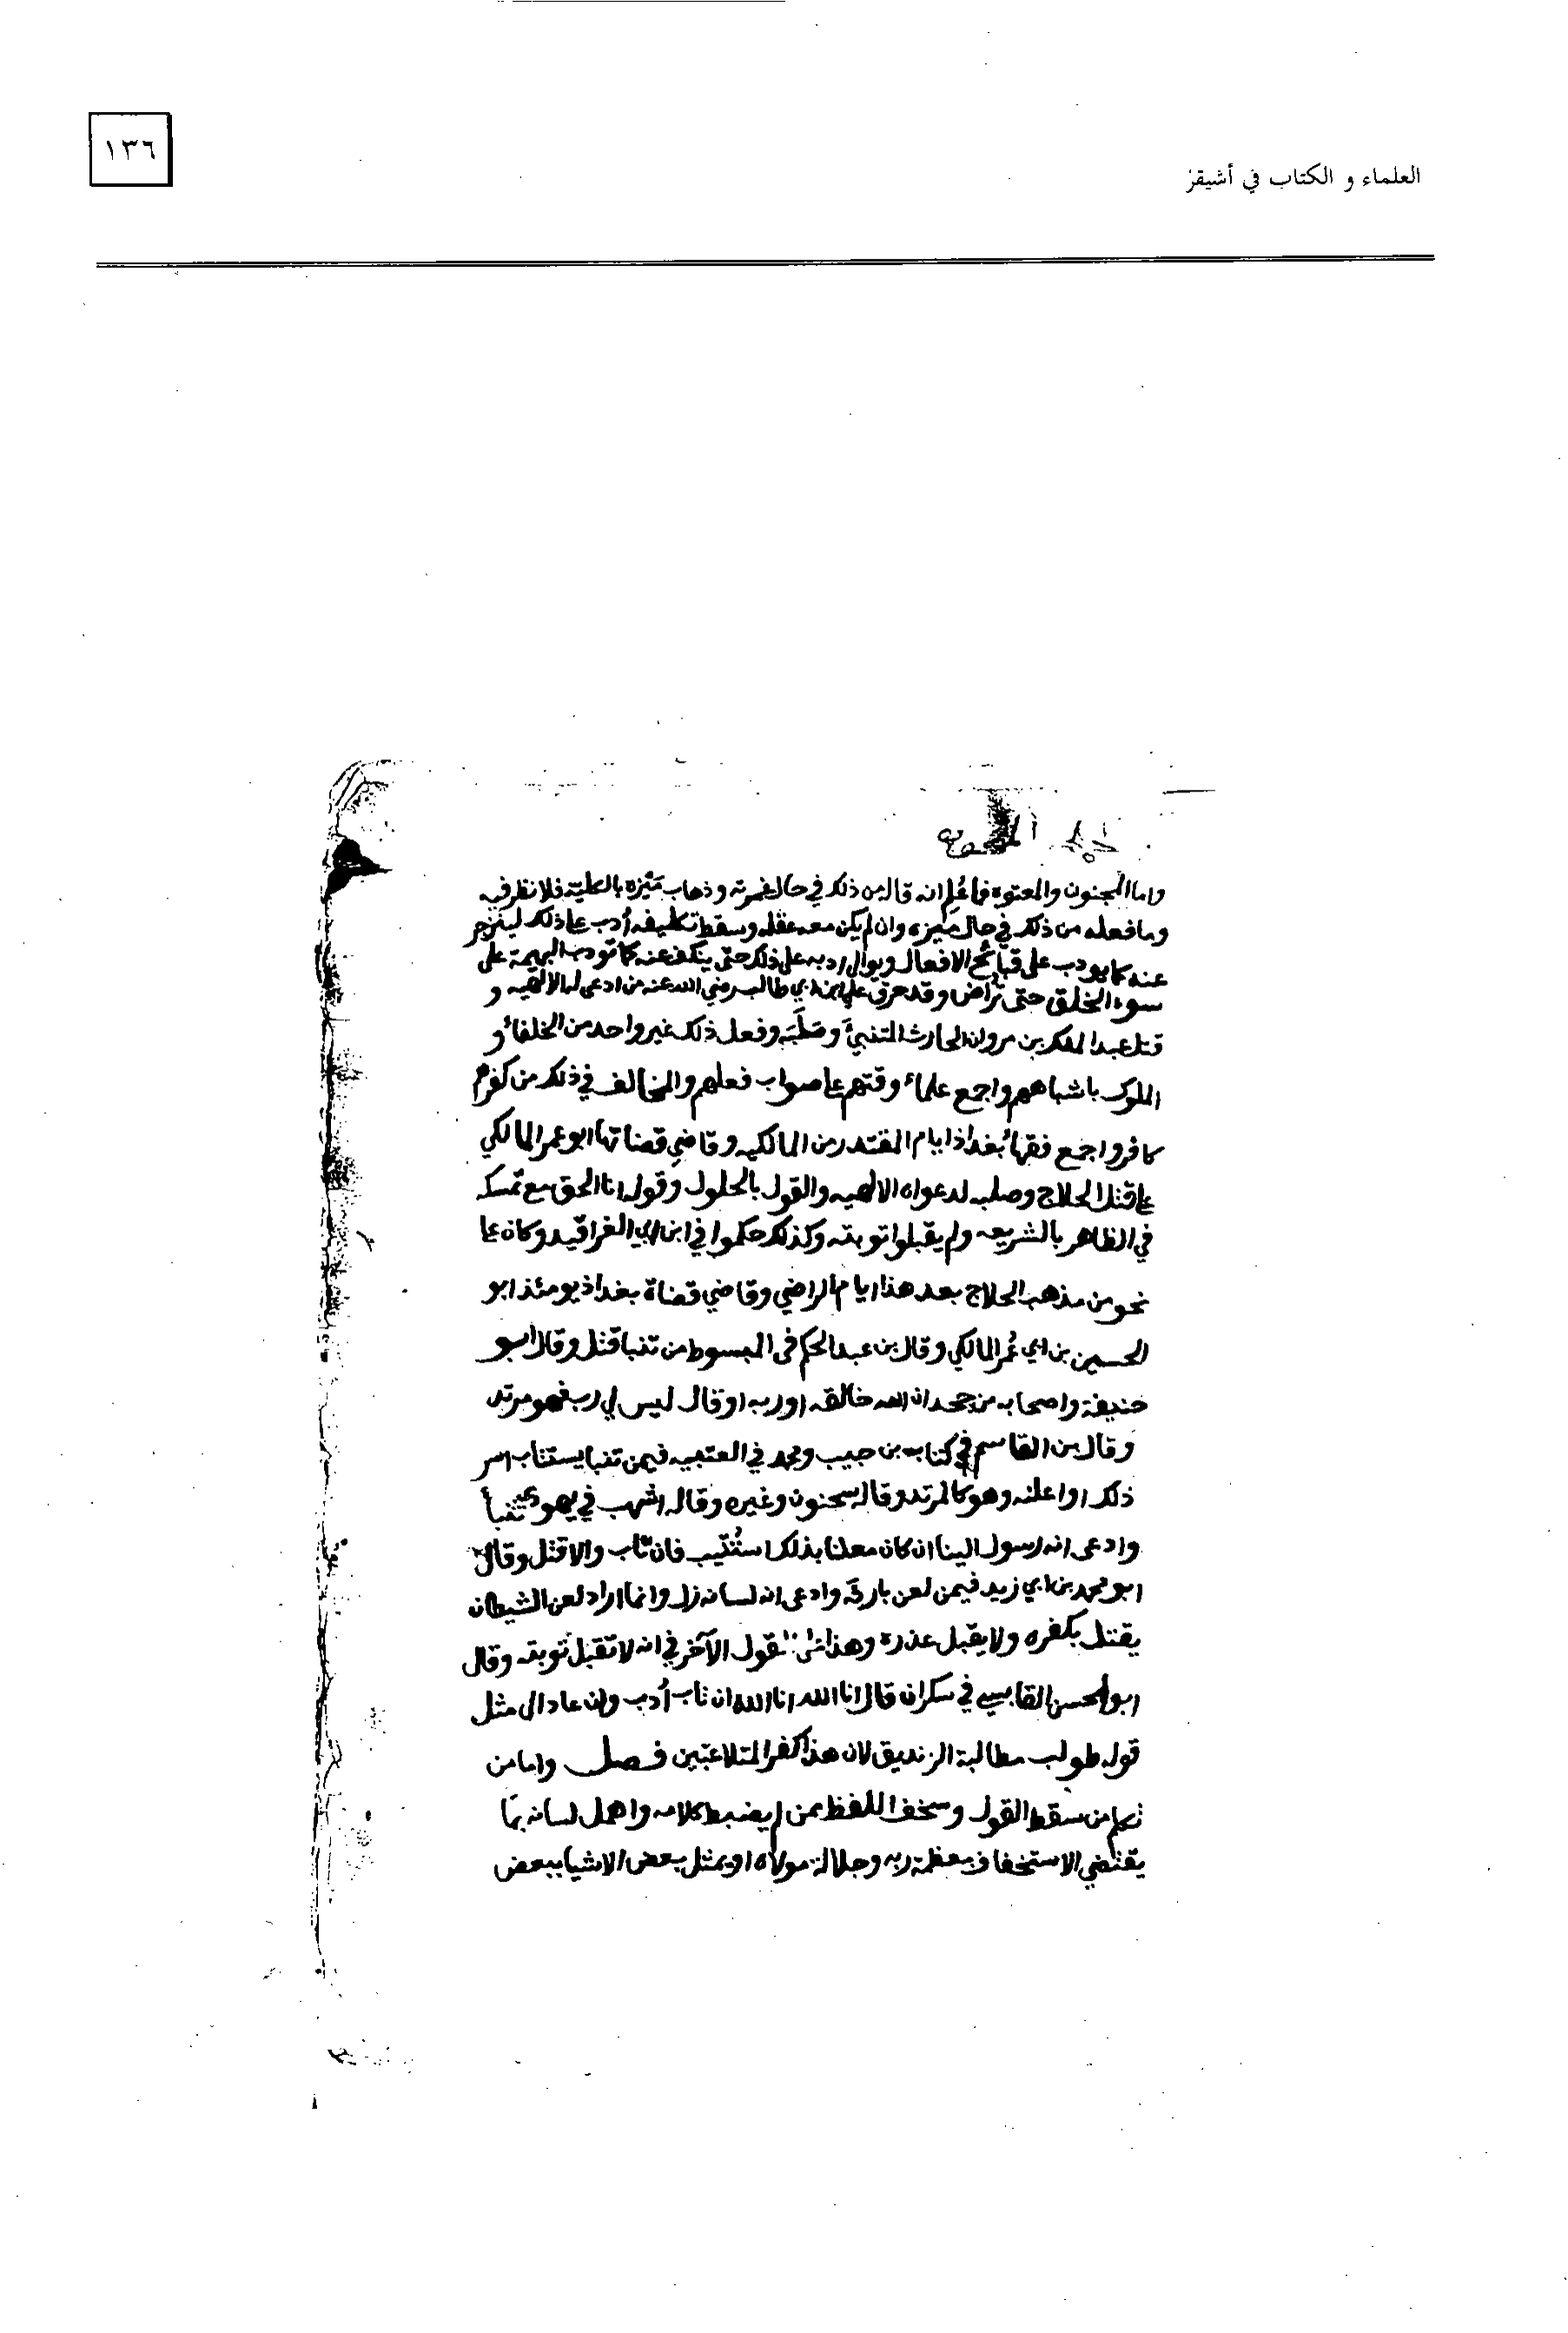 ١٣٦
العلماء و الكتاب في أشيقر
واما المجنون والمعتوه فما عُلِم انه قاله من ذلك في حال غمرته وذهاب مَيْزه بالكلية فلا نظر فيه
وما فعله من ذلك في حال مَيزه وان لم يكن معه عقله وسقط تكليفه أدب على ذلك لينزجر
عنه كما يودب على قبائح الافعال ويوالى ادبه على ذلك حتى ينكف عنه كما تودب البهيمة على
سوء الخلق حتى تراض وقد حرق علي ابن ابي طالب رضي الله عنه من ادعى له الالهيه و
قتل عبد الملك بن مروان الحارث المتنبئَ وصَلَبَه وفعل ذلك غير واحد من الخلفاء و
الملوك باشباههم واجمع علماء وقتهم على صواب فعلهم والمخالف في ذلك من كفرهم
كافر واجمع فقهاء بغداذ ايام المقتدر من المالكيه وقاضي قضاتها ابو عمر المالكي
على قتل الحلاج وصلبه لدعواه الالهيه والقول بالحلول وقوله انا الحق مع تمسكه
في الظاهر بالشريعه ولم يقبلوا توبته وكذلك حكموا في ابن ابي الغراقيد وكان على
نحو من مذهب الحلاج بعد هذا ايام الراضي وقاضي قضاة بغداذ يومئذ ابو
الحسين بن ابي عُمر المالكي وقال بن عبد الحكم في المبسوط من تنبا قتل وقال ابو
حنيفة واصحابه من جحد ان الله خالقه او ربه او قال ليس لي رب فهو مرتد
وقال بن القاسم في كتاب بن حبيب ومحمد في العتبيه فيمن تنبا يستتاب اسر
ذلك او اعلنه وهو كالمرتد وقاله سحنون وغيره وقاله اشهب في يهودي تنبأ
وادعى انه رسول الينا ان كان معلنا بذلك استُتيب فان تاب والا قتل وقال
ابو محمد بن ابي زيد فيمن لعن بارئه وادعى ان لسانه زل وانما اراد لعن الشيطان
يقتل بكفره ولا يقبل عذره وهذا على القول الآخر في انه لا تقبل توبته وقال
ابو الحسن القابسي في سكران قال انا الله انا الله ان تاب أدب وان عاد الى مثل
قوله طولب مطالبة الزنديق لان هذا كفر المتلاعبين فصل واما من
تكلم من سقط القول وسخف اللفظ ممن لم يضبط كلامه واهمل لسانه بما
يقتضي الاستخفاف بعظمة ربه وجلالة مولاه او يمثل بعض الاشيا ببعض